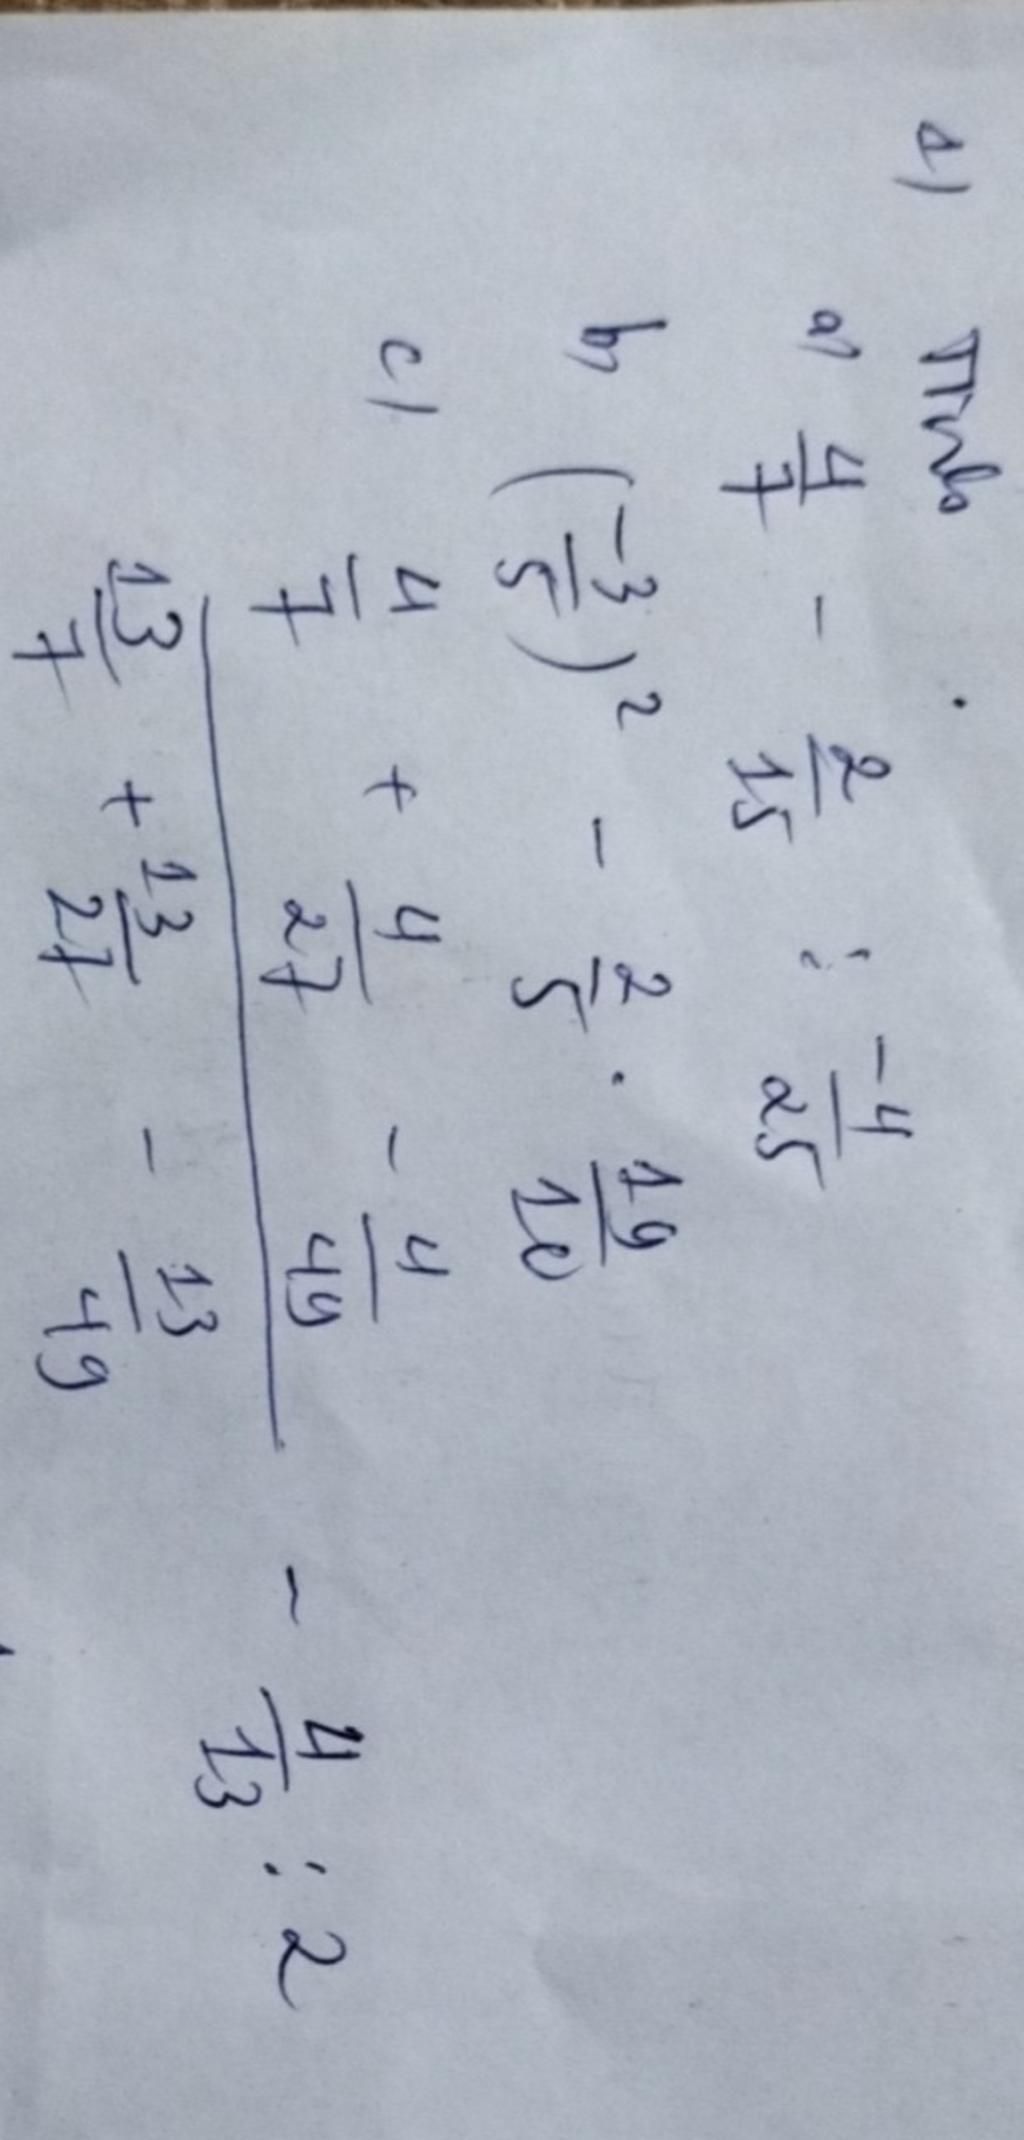 1) Tính
a) 4/7 - 2/15 : -4/25
b) (-3/5)² - 2/5 . 19/10
c) 4/7 + 4/27 - 4/49
13/7 + 13/27 - 13/49
- 4/13 : 2